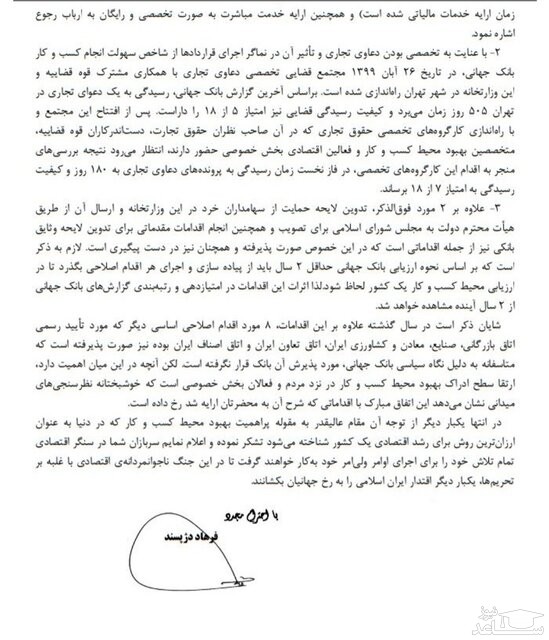 زمان ارایه خدمات مالیاتی شده است) و همچنین ارایه خدمت مباشرت به صورت تخصصی و رایگان به ارباب رجوع
اشاره نمود.
۲- با عنایت به تخصصی بودن دعاوی تجاری و تأثیر آن در نماگر اجرای قراردادها از شاخص سهولت انجام کسب و کار
بانک جهانی، در تاریخ ۲۶ آبان ۱۳۹۹ مجتمع قضایی تخصصی دعاوی تجاری با همکاری مشترک قوه قضاییه و
این وزارتخانه در شهر تهران راه‌اندازی شده است. براساس آخرین گزارش بانک جهانی، رسیدگی به یک دعوای تجاری در
تهران ۵۰۵ روز زمان می‌برد و کیفیت رسیدگی قضایی نیز امتیاز ۵ از ۱۸ را داراست. پس از افتتاح این مجتمع و
با راه‌اندازی کارگروه‌های تخصصی حقوق تجاری که در آن صاحب نظران حقوق تجارت، دست‌اندرکاران قوه قضاییه،
متخصصین بهبود محیط کسب و کار و فعالین اقتصادی بخش خصوصی حضور دارند، انتظار می‌رود نتیجه بررسی‌های
منجر به اقدام این کارگروه‌های تخصصی، در فاز نخست زمان رسیدگی به پرونده‌های دعاوی تجاری به ۱۸۰ روز و کیفیت
رسیدگی به امتیاز ۷ از ۱۸ برساند.
۳- علاوه بر ۲ مورد فوق‌الذکر، تدوین لایحه حمایت از سهامداران خرد در این وزارتخانه و ارسال آن از طریق
هیأت محترم دولت به مجلس شورای اسلامی برای تصویب و همچنین انجام اقدامات مقدماتی برای تدوین لایحه وثایق
بانکی نیز از جمله اقداماتی است که در این خصوص صورت پذیرفته و همچنان نیز در دست پیگیری است. لازم به ذکر
است که بر اساس نحوه ارزیابی بانک جهانی حداقل ۲ سال باید از پیاده سازی و اجرای هر اقدام اصلاحی بگذرد تا در
ارزیابی محیط کسب و کار یک کشور لحاظ شود.لذا اثرات این اقدامات در امتیازدهی و رتبه‌بندی گزارش‌های بانک جهانی
از ۲ سال آینده مشاهده خواهد شد.
شایان ذکر است در سال گذشته علاوه بر این اقدامات، ۸ مورد اقدام اصلاحی اساسی دیگر که مورد تأیید رسمی
اتاق بازرگانی، صنایع، معادن و کشاورزی ایران، اتاق تعاون ایران و اتاق اصناف ایران بوده نیز صورت پذیرفته است که
متاسفانه به دلیل نگاه سیاسی بانک جهانی، مورد پذیرش آن بانک قرار نگرفته است. لکن آنچه در این میان اهمیت دارد،
ارتقا سطح ادراک بهبود محیط کسب و کار در نزد مردم و فعالان بخش خصوصی است که خوشبختانه نظرسنجی‌های
میدانی نشان می‌دهد این اتفاق مبارک با اقداماتی که شرح آن به محضرتان ارایه شد رخ داده است.
در انتها یکبار دیگر از توجه آن مقام عالیقدر به مقوله پراهمیت بهبود محیط کسب و کار که در دنیا به عنوان
ارزان‌ترین روش برای رشد اقتصادی یک کشور شناخته می‌شود تشکر نموده و اعلام نمایم سربازان شما در سنگر اقتصادی
تمام تلاش خود را برای اجرای اوامر ولی‌امر خود به‌کار خواهند گرفت تا در این جنگ ناجوانمردانه‌ی اقتصادی با غلبه بر
تحریم‌ها، یکبار دیگر اقتدار ایران اسلامی را به رخ جهانیان بکشانند.
با احترام مجدد
فرهاد دژپسند
ساعد نیوز